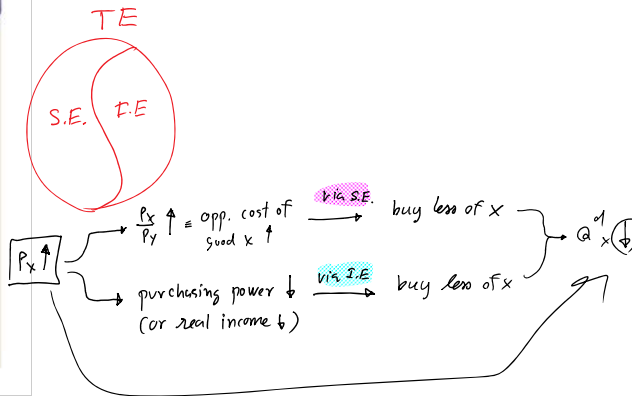 TE
S.E. I.E
Px ↑
Px/Py ↑ ≡ opp. cost of
good x ↑
via S.E.
buy less of x
purchasing power ↓
(or real income ↓)
via I.E
buy less of x
Q^d_x ↓